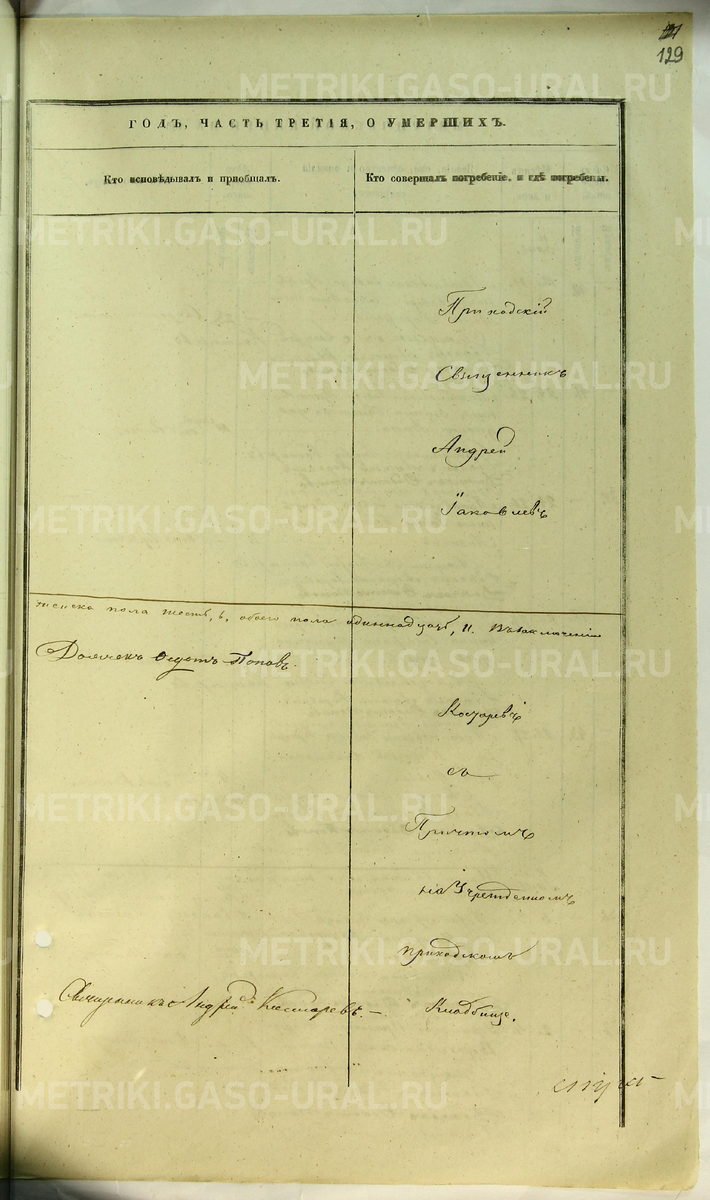 129
ГОДЪ, ЧАСТЬ ТРЕТІЯ, О УМЕРШИХЪ.
Кто исповѣдывалъ и пріобщалъ.
Кто совершалъ погребеніе, и гдѣ погребены.
Приходскій
Священникъ
Андрей
Іаковлевъ
женска пола шесть, 6, обоего пола одиннадцать, 11. Въ заключеніи
Дьячекъ Ѳедотъ Поповъ.
Костаревъ
съ
Причтомъ
на Учрежденномъ
приходскомъ
Кладбище.
Священникъ Андрей Костаревъ. —
METRIKI.GASO-URAL.RU